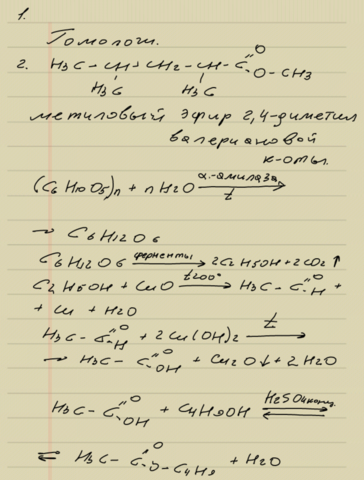 1.
Гомологи.
2. H3C - CH - CH2 - CH - C =O
H3C H3C O - CH3
метиловый эфир 2,4-диметил
валериановой
к-оты.
(C6H10O5)n + nH2O α-амилаза t →
→ C6H12O6
C6H12O6 ферменты → 2C2H5OH + 2CO2 ↑
C2H5OH + CuO t200° → H3C - C =O H +
+ Cu + H2O
H3C - C =O H + 2Cu(OH)2 t →
→ H3C - C =O OH + Cu2O ↓ + 2H2O
H3C - C =O OH + C4H9OH H2SO4конц. ⇌
⇌ H3C - C =O O - C4H9 + H2O